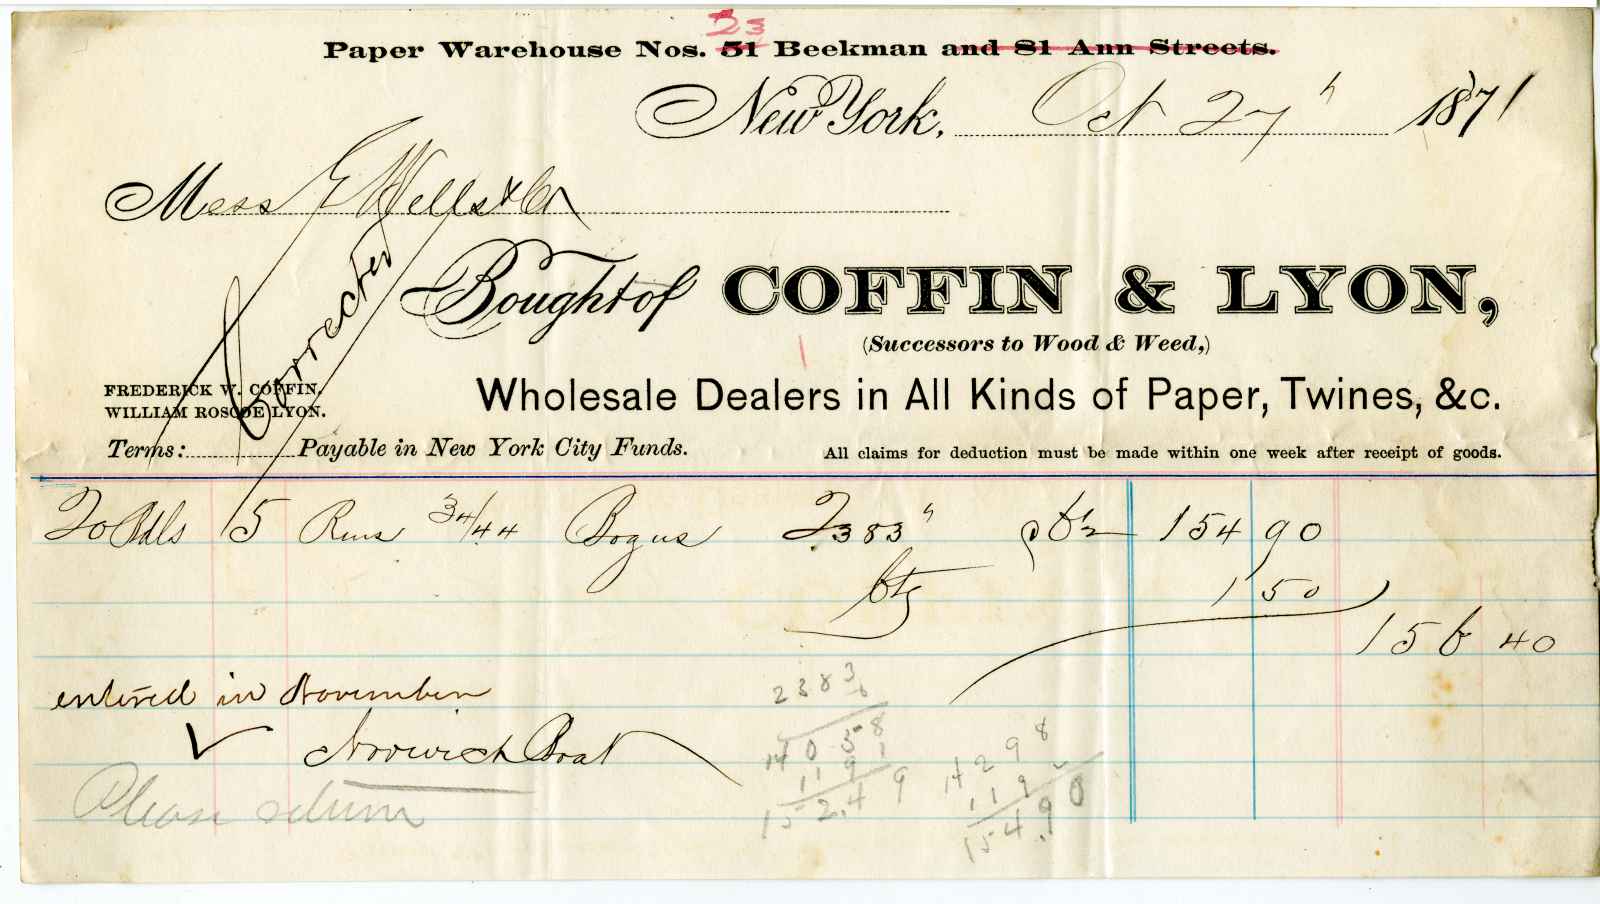 23
Paper Warehouse Nos. 51 Beekman and 81 Ann Streets.
New York, Oct 27" 1871
Mess E Wells & Co
Corrected
Bought of COFFIN & LYON,
(Successors to Wood & Weed,)
FREDERICK W. COFFIN.
WILLIAM ROSCOE LYON.
Wholesale Dealers in All Kinds of Paper, Twines, &c.
Terms: Payable in New York City Funds.
All claims for deduction must be made within one week after receipt of goods.
20 Bdls 5 Rms 34/44 Bogus 2383" 6½ 154 90
Ctg 1 50
156 40
entered in November
Norwich Boat
Please return
2383
6
140 58
11 91
152.49
142 98
11 92
154.90